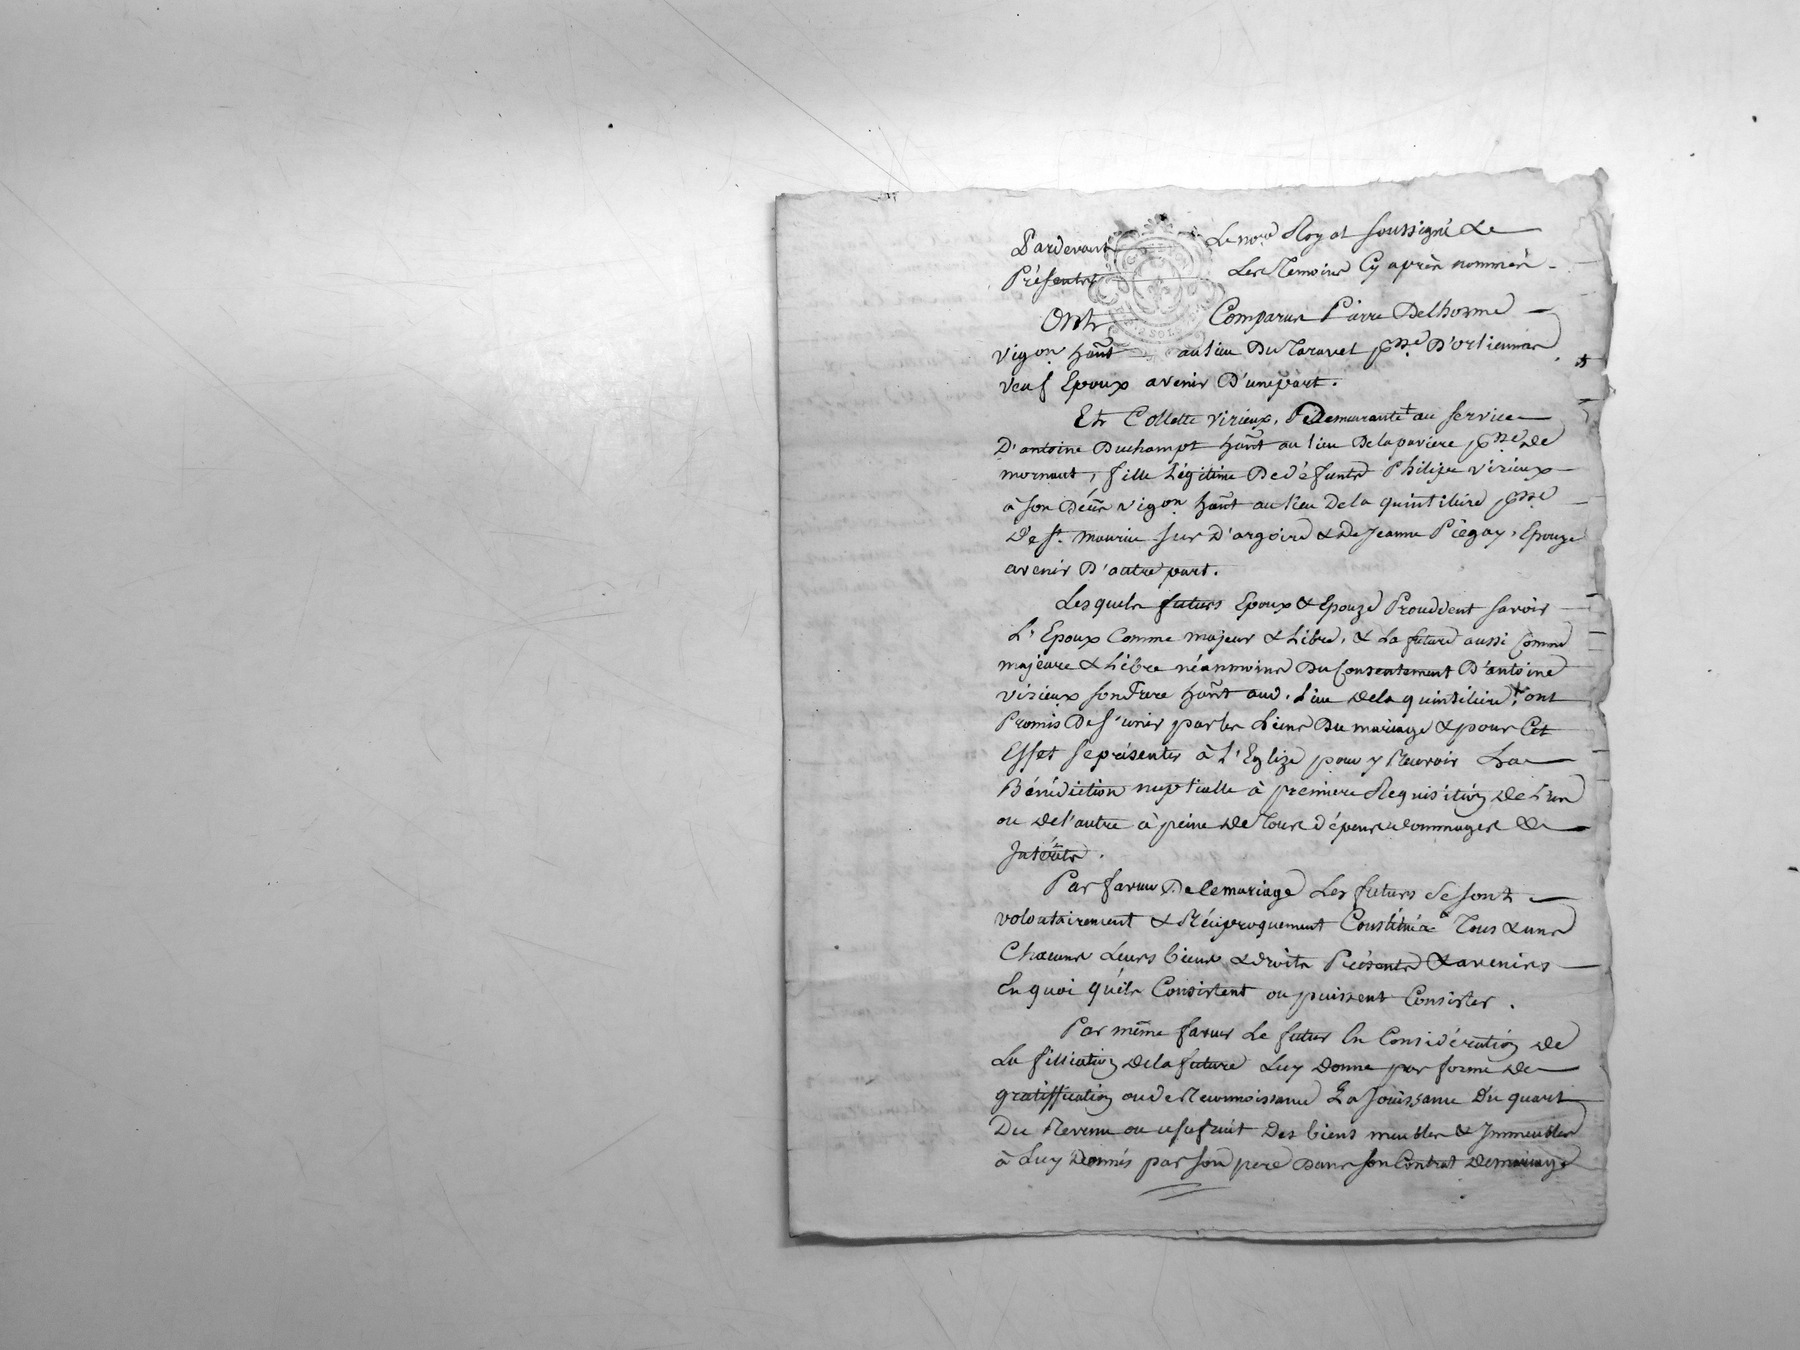 Pardevant Le no.re Royal soussigné & Le
Présents Les Temoins Cy après nommés
Ont Comparus Pierre Delhorme
vigon hant au lieu Du Taravel psse D'orlienas
veuf Epoux avenir D'une part.
Et Collette virieux, Demeurante + au service
D'antoine Duchampt hant au lieu De la paviere psse de
mornant, fille Légitime De défunts Philipe virieux
à son Décès vigon hant au lieu De la quintiliere psse
De st. maurice sur D'argoire & De Jeanne Piégay, Epouze
avenir D'autre part.
Lesquels futurs Epoux & Epouze Procèdent savoir
L'Epoux Comme majeur & Libre, & La future aussi Comme
majeure & Libre néanmoins Du Consentement D'antoine
virieux son frere hant aud. Lieu de la quintiliere, ont
Promis De s'unir par les Liens Du mariage & pour Cet
Effet se présenter à L'Eglize pour y Recevoir La
Bénédiction nuptialle à premiere Requisition de L'un
ou de l'autre à peine de Tous dépens dommages &
Intérêts.
Par faveur De ce mariage Les futurs se sont
volontairement & Réciproquement Constitués Tous & uns
Chacuns Leurs biens & droits Présents & avenirs
En quoi qu'ils Consistent ou puissent Consister.
Par même faveur Le futur En Considération de
La filliation de la future Luy Donne par forme de
gratiffication ou de Reconnoissance La Jouissance Du quart
Du Revenu ou usufruit Des biens meubles & Immeubles
à Luy Donnés par son pere Dans son Contrat de mariage